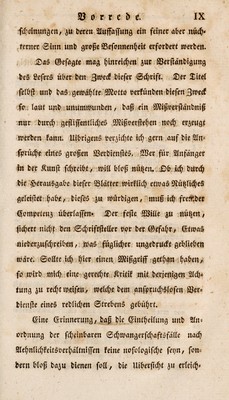 Vorrede. IX
scheinungen, zu deren Auffassung ein feiner aber nüch-
terner Sinn und große Besonnenheit erfordert werden.
Das Gesagte mag hinreichen zur Verständigung
des Lesers über den Zweck dieser Schrift. Der Titel
selbst und das gewählte Motto verkünden diesen Zweck
so laut und unumwunden, daß ein Mißverständniß
nur durch geflissentliches Mißverstehen noch erzeugt
werden kann. Uibrigens verzichte ich gern auf die An-
sprüche eines großen Verdienstes. Wer für Anfänger
in der Kunst schreibt, will bloß nützen. Ob ich durch
die Herausgabe dieser Blätter wirklich etwas Nützliches
geleistet habe, dieses zu würdigen, muß ich fremder
Competenz überlassen. Der feste Wille zu nützen,
sichert nicht den Schriftsteller vor der Gefahr, Etwas
niederzuschreiben, was füglicher ungedruckt geblieben
wäre. Sollte ich hier einen Mißgriff gethan haben,
so wird mich eine gerechte Kritik mit derjenigen Ach-
tung zu recht weisen, welche dem anspruchslosen Ver-
dienste eines redlichen Strebens gebührt.
Eine Erinnerung, daß die Eintheilung und An-
ordnung der scheinbaren Schwangerschaftsfälle nach
Aehnlichkeitsverhältnissen keine nosologische seyn, son-
dern bloß dazu dienen soll, die Uibersicht zu erleich-